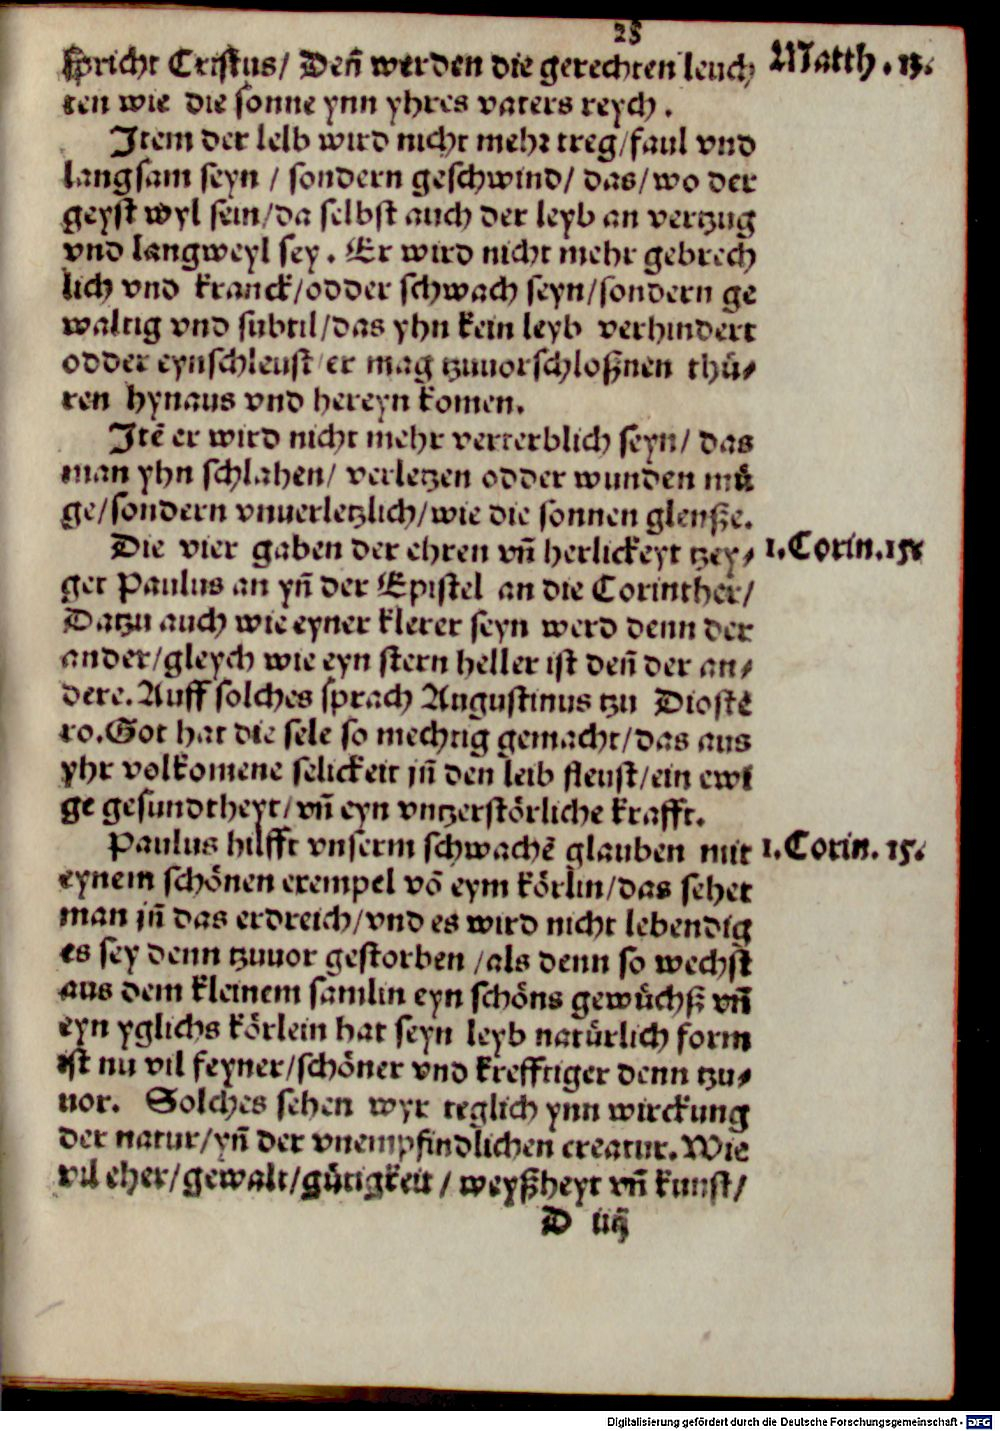 28
spricht Cristus/ Deñ werden die gerechten leuch Matth. 13.
ten wie die sonne ynn yhres vaters reych.
Item der leib wird nicht mehr treg/faul vnd
langsam seyn / sondern geschwind/ das/wo der
geyst wyl sein/da selbst auch der leyb an vertzug
vnd langweyl sey. Er wird nicht mehr gebrech
lich vnd kranck/odder schwach seyn/sondern ge
waltig vnd subtil/das yhn kein leyb verhindert
odder eynschleust/er mag tzuuorschloßnen thuͤ⸗
ren hynaus vnd hereyn komen.
Itē er wird nicht mehr verterblich seyn/ das
man yhn schlahen/ verletzen odder wunden muͤ
ge/sondern vnuerletzlich/wie die sonnen glenße.
Die vier gaben der ehren vñ herlickeyt tzey⸗ 1. Corin. 15.
get Paulus an yñ der Epistel an die Corinther/
Datzu auch wie eyner klerer seyn werd denn der
ander/gleych wie eyn stern heller ist deñ der an⸗
dere. Auff solches sprach Augustinus tzu Diostē
ro. Got hat die sele so mechtig gemacht/das aus
yhr volkomene selickeit jñ den leib fleust/ein ewi
ge gesundtheyt/vñ eyn vntzerstoͤrliche krafft.
Paulus hilfft vnserm schwachē glauben mit 1. Corin. 15.
eynem schoͤnen exempel vō eym koͤrlin/das sehet
man jñ das erdreich/vnd es wird nicht lebendig
es sey denn tzuuor gestorben /als denn so wechst
aus dem kleinem samlin eyn schoͤns gewuͤchß vñ
eyn yglichs koͤrlein hat seyn leyb natuͤrlich form
ist nu vil feyner/schoͤner vnd krefftiger denn tzu⸗
uor. Solches sehen wyr teglich ynn wirckung
der natur/yñ der vnempfindlichen creatur. Wie
vil eher/gewalt/guͤtigkeit / weyßheyt vñ kunst/
D iiij
Digitalisierung gefördert durch die Deutsche Forschungsgemeinschaft - DFG